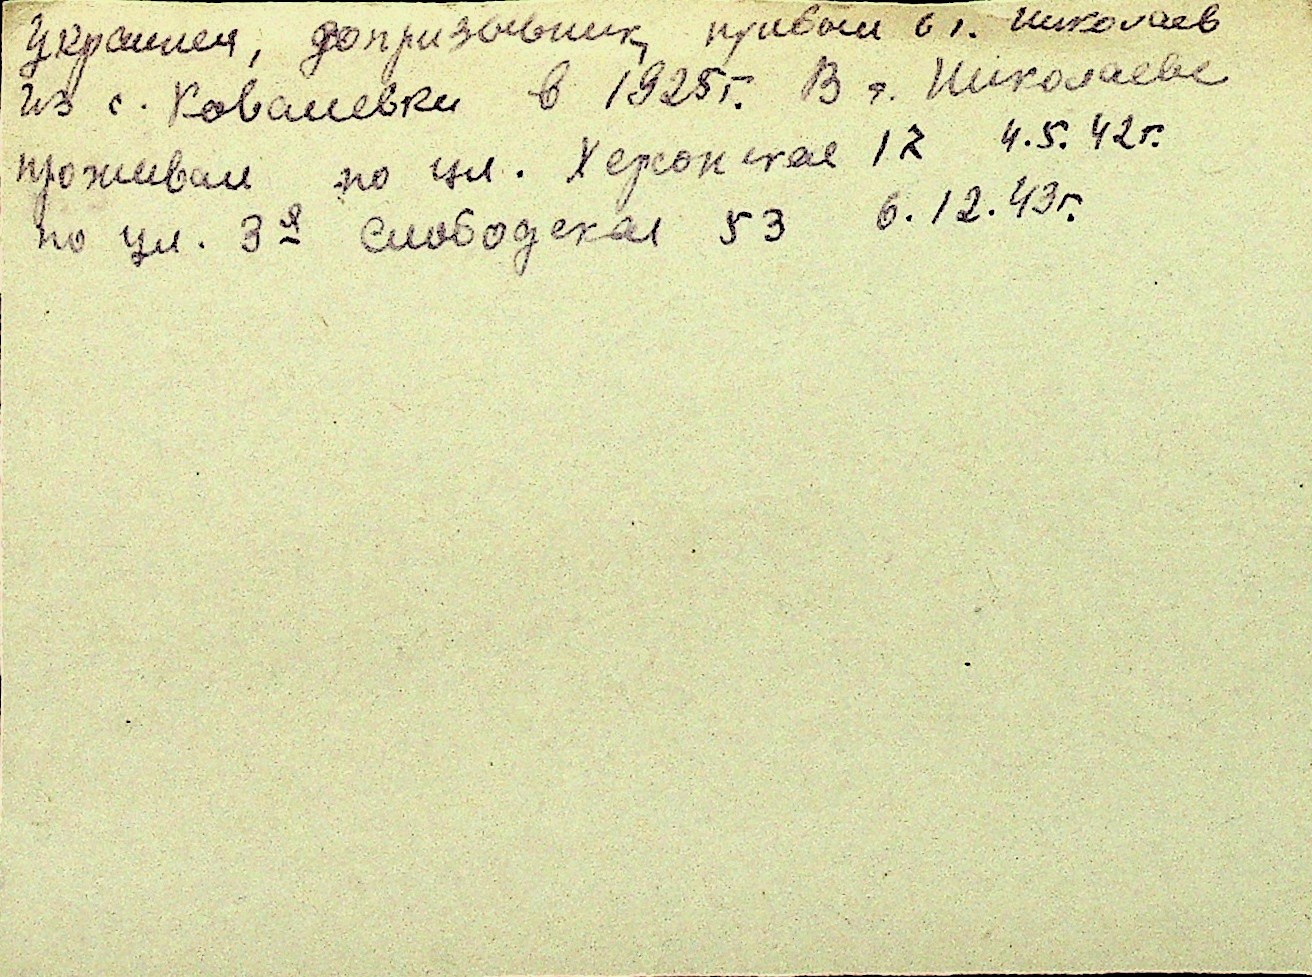 Украинец, допризывник, прибыл в г. Николаев
из с. Ковалевки в 1925г. В г. Николаеве
проживал по ул. Херсонская 12 4.5.42г.
по ул. 3я Слободская 53 6.12.43г.